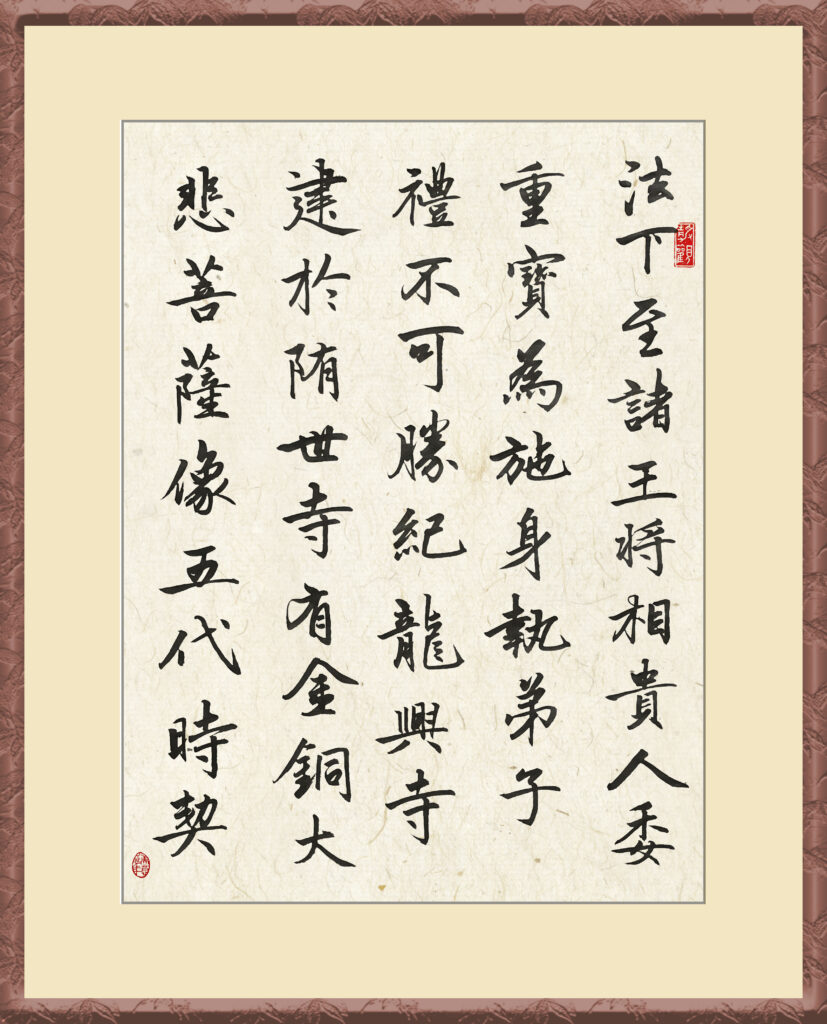 法下至諸王将相貴人委
重寶為施身執弟子
禮不可勝紀龍興寺
建於隋世寺有金銅大
悲菩薩像五代時契